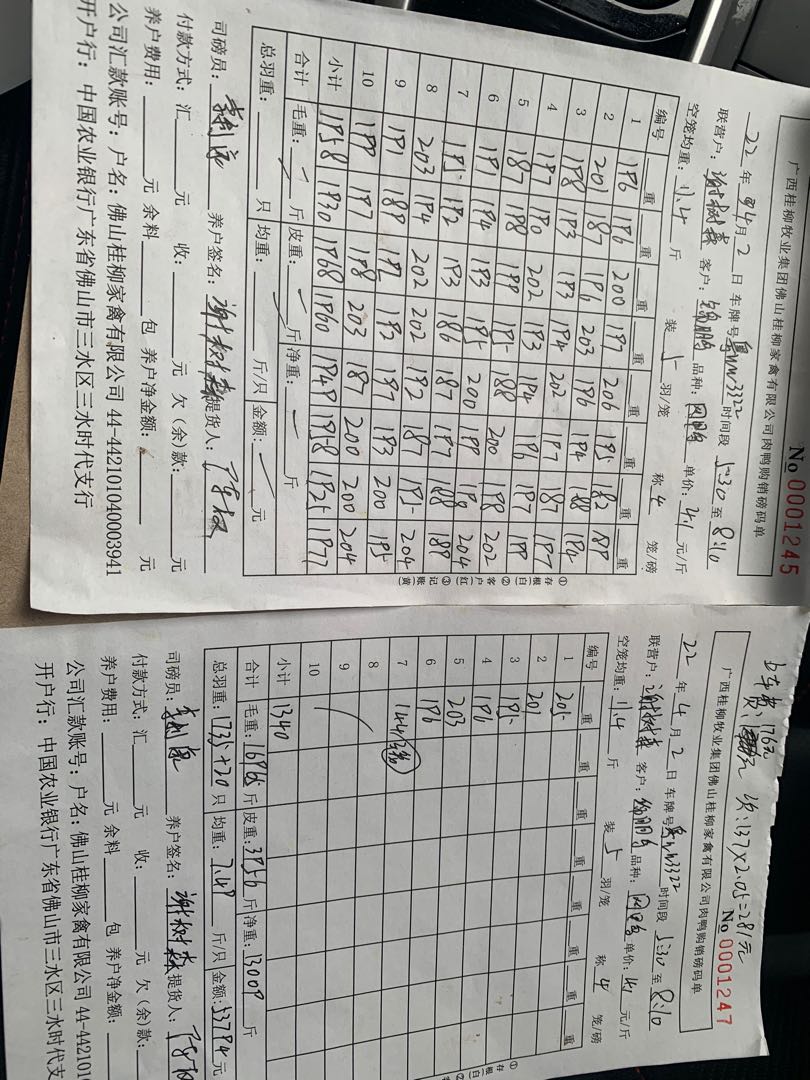 No 0001245
广西桂柳牧业集团佛山桂柳家禽有限公司肉鸭购销磅码单
22 年 4 月 2 日 车牌号 粤WW3322 时间段 5:30 至 8:10
联营户: 谢树森 客户: 锦鹏鸭 品种: 网鸭 单价: 4.1 元/斤
空笼均重: 11.4 斤 装 5 羽/笼 称 4 笼/磅
编号 重 重 重 重 重 重 重 重
1 196 196 200 197 206 195 182 189
2 201 187 196 203 196 194 188 194
3 198 193 193 194 202 197 187 197
4 197 190 202 193 194 196 197 199
5 187 198 199 195 188 200 198 202
6 191 194 193 195 200 199 190 204
7 195 192 193 186 187 197 188 189
8 203 194 202 202 192 187 195 204
9 191 189 192 192 197 193 200 195
10 199 197 198 203 187 200 200 204
小计 1958 1930 1968 1960 1949 1958 1925 1977
合计 毛重: 斤 皮重: 斤 净重: 斤
总羽重: 只 均重: 斤/只 金额: 元
①存根(白) ②客户(红) ③记账(黄)
司磅员: 养户签名: 谢树森 提货人:
付款方式: 汇 元 收: 元 欠(余)款: 元
养户费用: 元 余料 包 养户净金额: 元
公司汇款账号: 户名: 佛山桂柳家禽有限公司 44-442101040003941
开户行: 中国农业银行广东省佛山市三水区三水时代支行
费: 176元 137×2.05=281元
No 0001247
广西桂柳牧业集团佛山桂柳家禽有限公司肉鸭购销磅码单
22 年 4 月 2 日 车牌号 粤WW3322 时间段 5:30 至 8:10
联营户: 谢树森 客户: 锦鹏鸭 品种: 网鸭 单价: 4.1 元/斤
空笼均重: 11.4 斤 装 5 羽/笼 称 4 笼/磅
编号 重 重 重 重 重 重 重
1 205
2 201
3 195
4 196
5 203
6 196
7 144 3笼
8
9
10
小计 1340
合计 毛重: 16965 斤 皮重: 3956 斤 净重: 13009 斤
总羽重: 1735+20 只 均重: 7.49 斤/只 金额: 53794 元
①存根(白)
司磅员: 养户签名: 谢树森 提货人:
付款方式: 汇 元 收: 元 欠(余)款:
养户费用: 元 余料 包 养户净金额:
公司汇款账号: 户名: 佛山桂柳家禽有限公司 44-4421010
开户行: 中国农业银行广东省佛山市三水区三水时代支